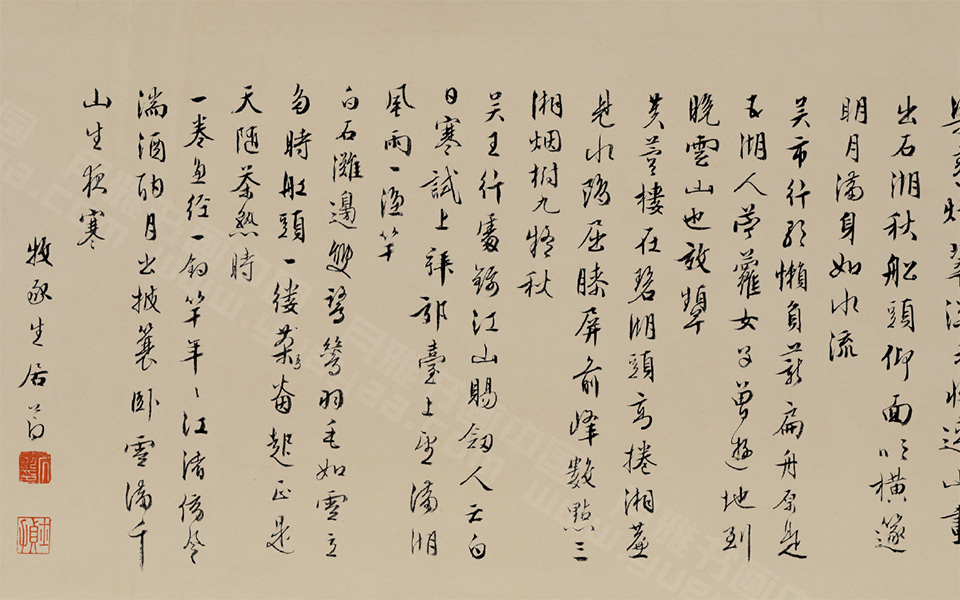 出石湖秋船頭仰面吹橫篴
明月滿身如水流
吳市行歌懶負薪扁舟原是
五湖人苧蘿女子曾遊地到
晚雲山也效顰
黃萼樓在碧湖頭高捲湘簾
見水鷗屈膝屏前峰數點三
湘烟樹九疑秋
吳王行處錦江山賜劍人亡白
日寒試上拜郊臺上望滿湖
風雨一漁竿
白石灘邊雙鷺鷥羽毛如雪立
多時船頭一縷茶起正是
天隨茶熟時
一卷魚經一釣竿年〻江渚傍風
湍酒酣月出披蓑臥雪滿千
山生夜寒
牧豕生居節